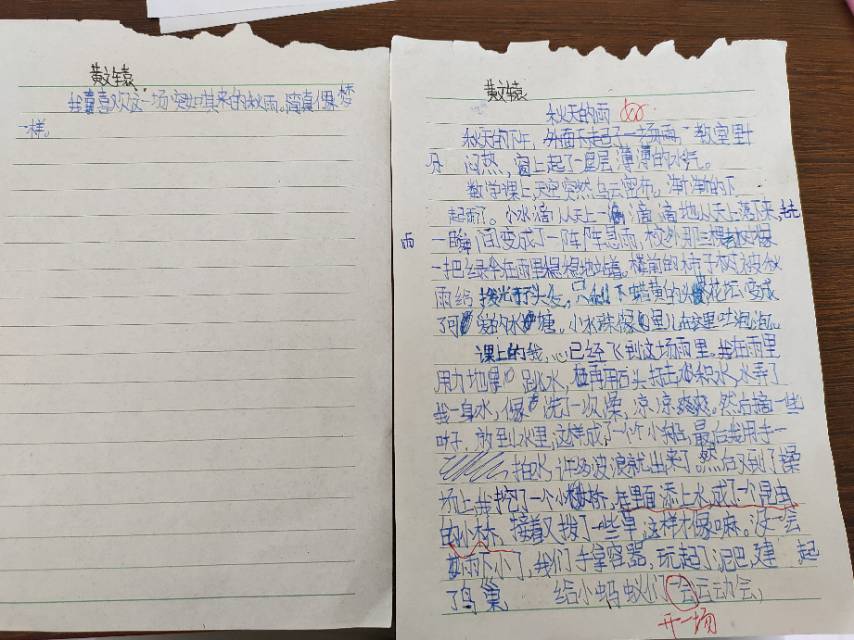 黄文轅
秋天的雨
秋天的下午,外面下起了一场雨,教室里十
分闷热,窗上起了一层薄薄的水汽。
数学课上天空突然乌云密布,渐渐的下
起雨了。小水滴从天上一滴滴地从天上落下来,
一瞬间变成了一阵阵急雨,校外那三棵树像
雨
一把绿伞在雨里稳稳地站着,楼前的柿子树被秋
雨给拨光了头发,只剩下蜡黄的头,花坛变成
了可爱的水塘。小水珠像鱼儿在这里吐泡泡。
课上的我,心已经飞到这场雨里。我在雨里
用力地跳水,再用石头打击积水,水弄了
我一身水,像洗了一次澡,凉凉爽爽。然后摘一些
叶子,放到水里,这样成了一个个小船,最后我用手一
拍水,许多波浪就出来了。然后又到了操
场上我挖了一个小桥,在里面添上水成了一个昆虫
的小林,接着又拨了一些草,这样才像嘛。没一会
雨下小了,我们手拿容器,玩起了泥巴,建起
了鸟巢 给小蚂蚁们一会运动会,
开一场
黄文轅
我喜欢这一场突如其来的秋雨。简直像梦
一样。